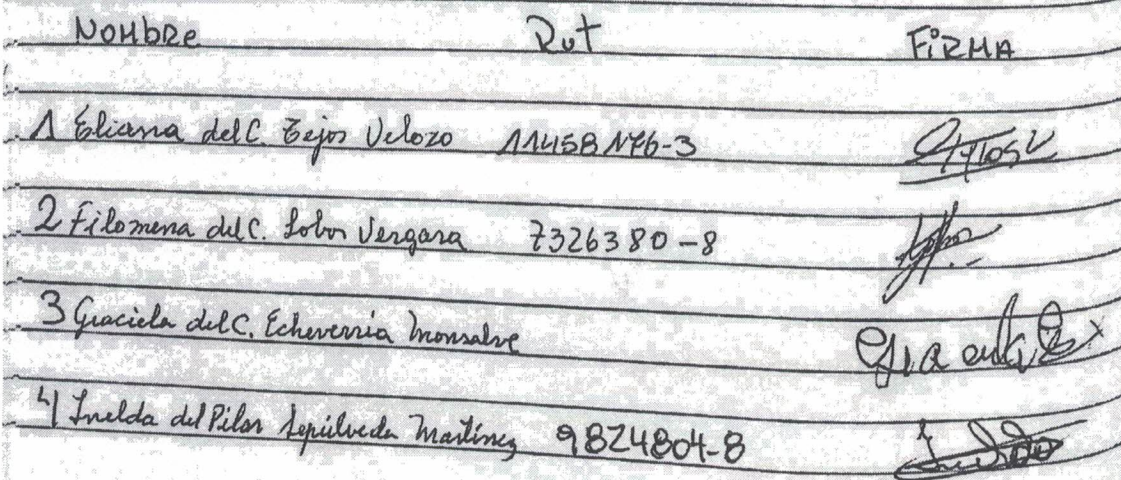 Nombre Rut Firma
1 Eliana del C. Tejos Velozo 11458176-3
2 Filomena del C. Lobos Vergara 7326380-8
3 Graciela del C. Echeverria Monsalve
4 Imelda del Pilar Sepúlveda Martínez 9824804-8